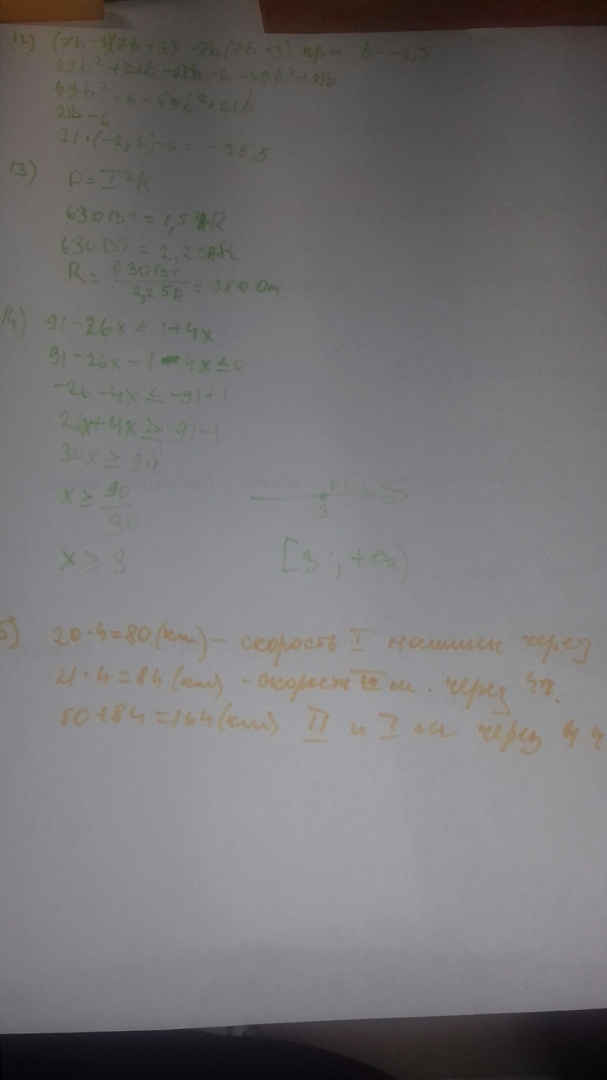 12) (7b-3)(7b+3) -7b(7b+3) при b=-2,5
49b²+21b-21b-6-49b²+21b
49b²-6-49b²+21b
21b-6
21·(-2,5)-6=-58,5
13) P=I²R
630Вт=1,5²R
630Вт=2,25R
R=630Вт/2,25A=280 Ом
14) 91-26x≤1+4x
91-26x-1-4x≤0
-26-4x≤-91+1
26x+4x≥91-1
30x≥90
x≥90/30
3
x≥3 [3;+∞)
5) 20·4=80(km)- скорость I машины через
21·4=84(km) -скорост II м. через 4ч.
80+84=164(km) II и I м через 4 ч